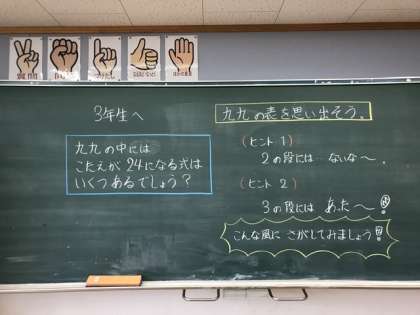 3年生へ
九九の中には
こたえが24になる式は
いくつあるでしょう?
九九の表を思い出そう。
(ヒント1)
2の段には ないな〜。
(ヒント2)
3の段には あった〜!
こんな風に さがしてみましょう!!